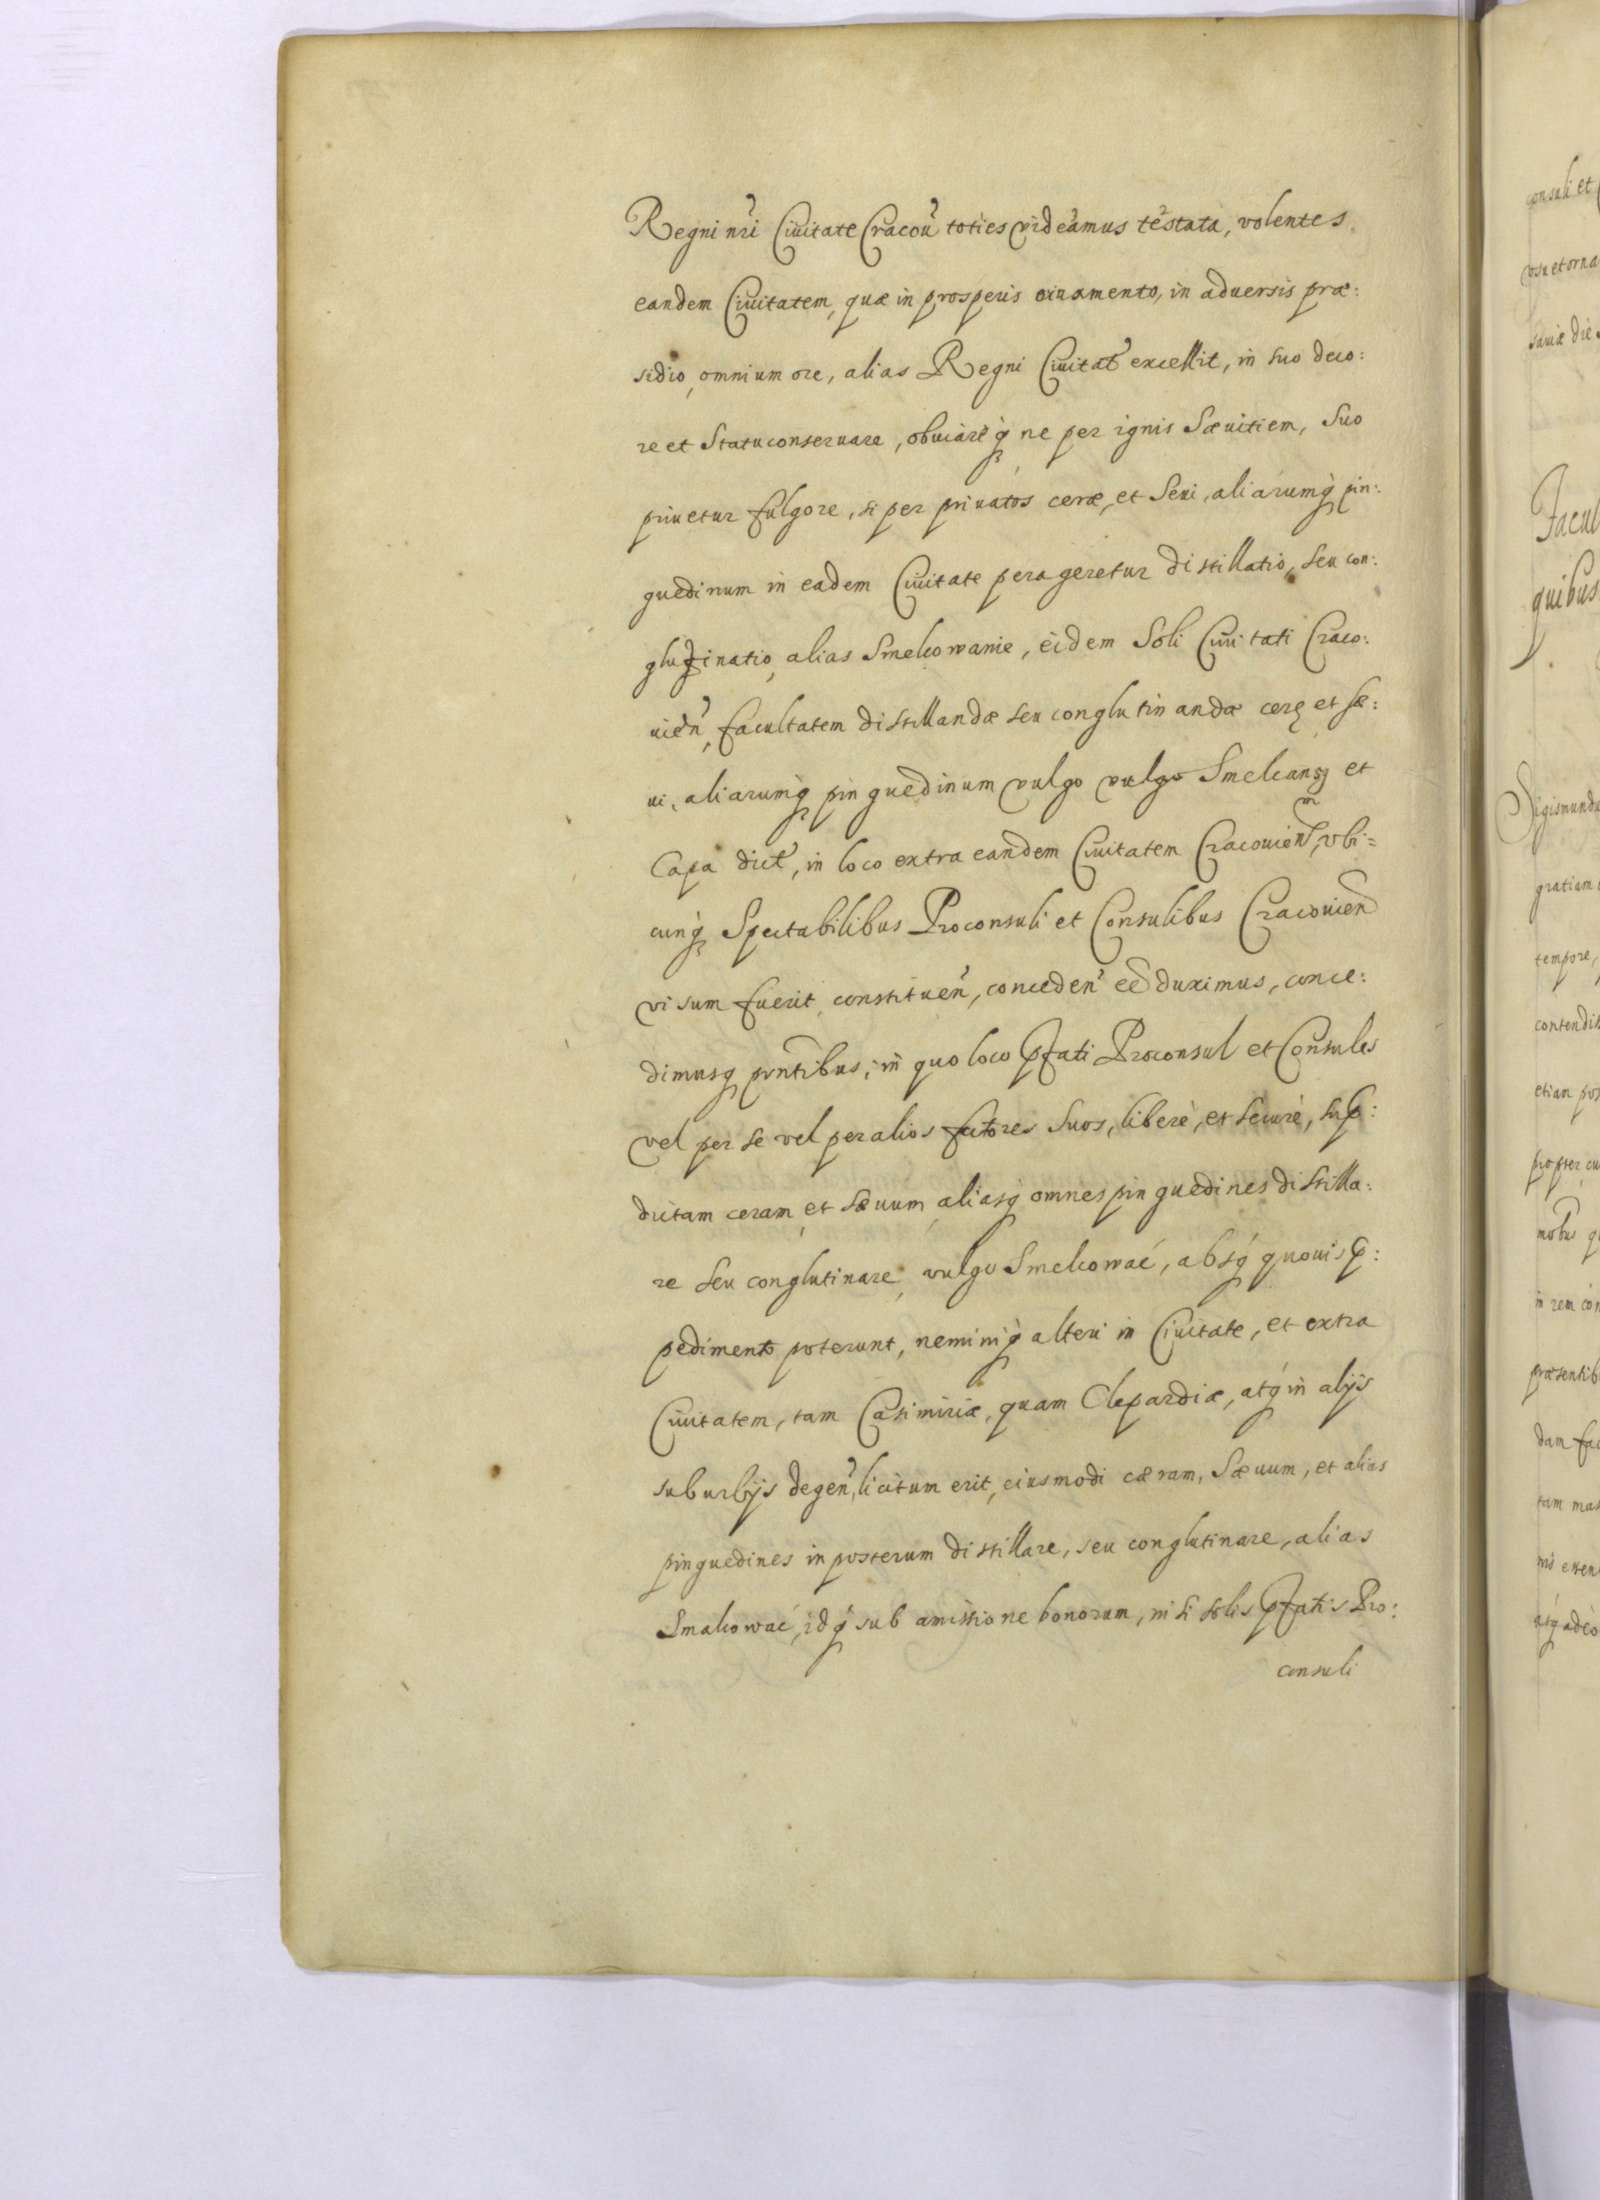 Regni nr̃i Ciuitate Cracou̾ toties videamus testata, volentes
eandem Ciuitatem, quæ in prosperis ornamento, in aduersis præ:
sidio, omnium ore, alias Regni Ciuitat̾ excellit, in suo deco:
re et Statu conseruare, obuiareq́ꝫ ne per ignis Sæuitiem, Suo
priuetur fulgore, si per priuatos ceræ, et Seui, aliarumq́ꝫ pin:
guedinum in eadem Ciuitate perageretur distillatio, seu con:
glutinatio, alias Smelcowanie, eidem Soli Ciuitati Craco:
uien̾, facultatem distillandæ seu conglutinandæ cerę et sæ:
ui, aliarumq́ꝫ pinguedinum vulgo vulgo Smelcansz et
Capa dict̾, in loco extra eandem Ciuitatem Cracouien̄, vbi=
cunq́ꝫ Spectabilibus Proconsuli et Consulibus Cracouien̄
visum fuerit, constituen̾, conceden̾ eē duximus, conce:
dimusq̨ pn̄tibus, in quo loco p̄fati Proconsul et Consules
vel per se vel per alios factores Suos, liberè, et securè, sup̄:
dictam ceram et sæuum aliasq́ omnes pinguedines distilla:
re seu conglutinare, vulgo Smelcować, absq́ quouis p̄:
pedimento poterunt, neminiq́ alteri in Ciuitate, et extra
Ciuitatem, tam Casimiriæ, quam Clepardiæ, atq́ in alijs
suburbijs degen̾, licitum erit, eiusmodi cæram, Sæuum, et alias
pinguedines in posterum distillare, seu conglutinare, alias
Smalcować, idq́ sub amissione bonorum, nisi solis p̄fatis Pro:
consuli
consuli et
gratiam
tempore,
contendit
propter
præsentib